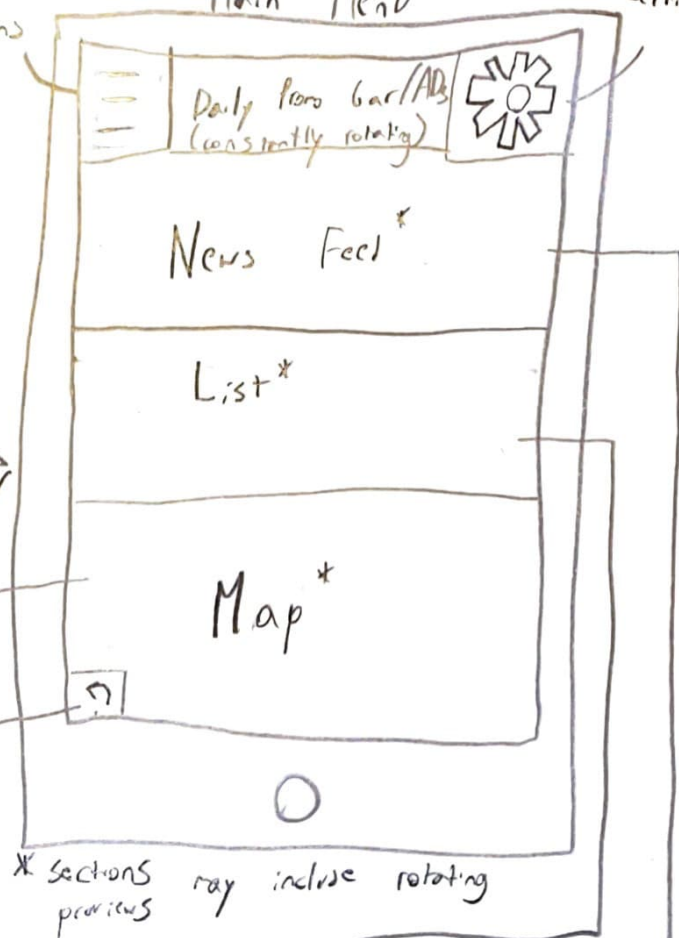 Main Menu
Daily Promo bar/ADs
(constantly rotating)
News Feed*
List*
Map*
?
* sections may include rotating
previews